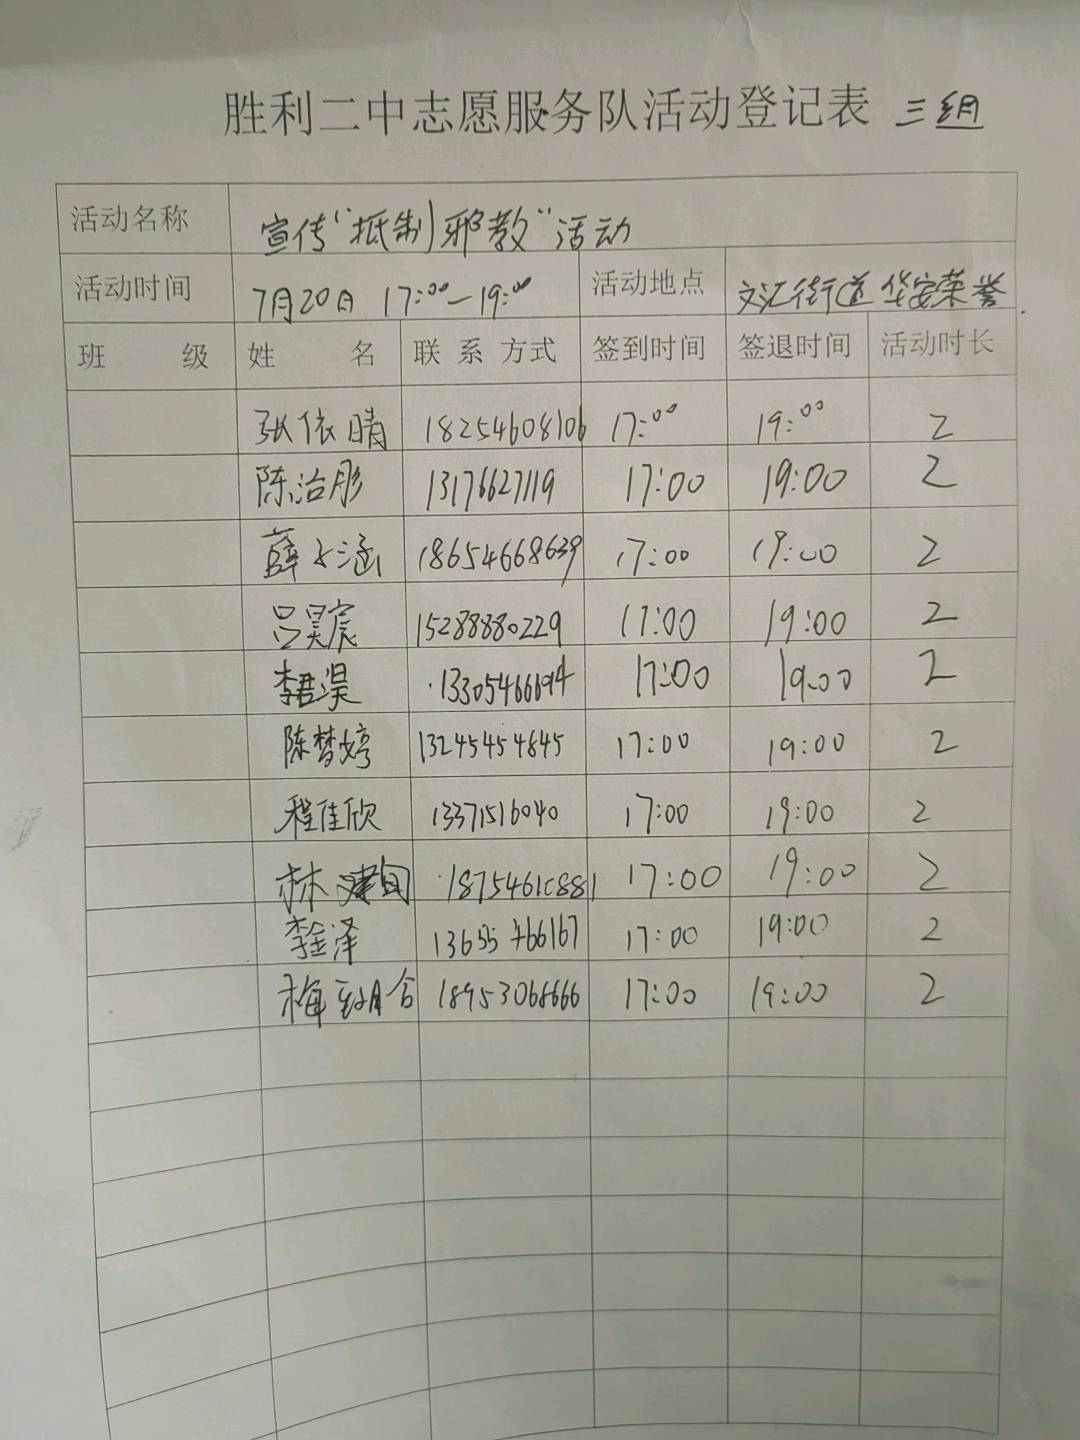 胜利二中志愿服务队活动登记表 三组
活动名称 宣传“抵制邪教”活动
活动时间 7月20日 17:00—19:00 活动地点 文汇街道华安荣誉
班 级 姓 名 联系方式 签到时间 签退时间 活动时长
张依晴 18254608106 17:00 19:00 2
陈治彤 13176627119 17:00 19:00 2
薛子涵 18654668639 17:00 19:00 2
吕昊宸 15288880229 17:00 19:00 2
李君淏 13305466694 17:00 19:00 2
陈梦婷 13245454845 17:00 19:00 2
程佳欣 13371516040 17:00 19:00 2
林 18754610881 17:00 19:00 2
李金泽 13655466167 17:00 19:00 2
梅 18953068666 17:00 19:00 2